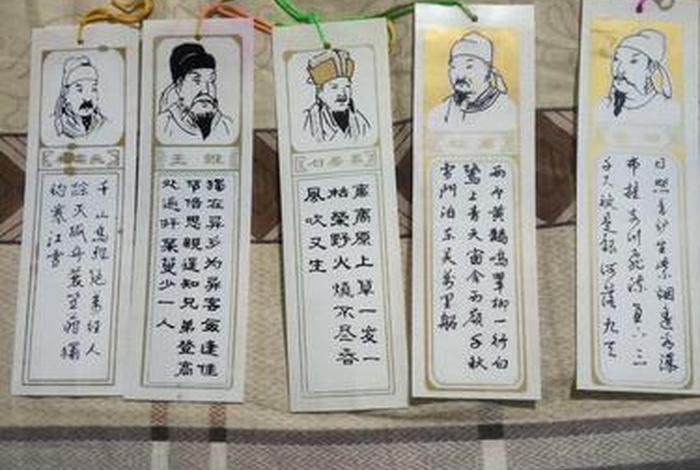 千山鸟飛绝萬径人
踪灭孤舟蓑笠翁獨
钓寒江雪
王維
獨在异乡为异客每逢佳
节倍思親遥知兄弟登高
处遍插茱萸少一人
白居易
离离原上草一岁一
枯榮野火燒不尽春
風吹又生
两个黄鹂鳴翠柳一行白
鹭上青天窗含西嶺千秋
雪門泊东吴萬里船
日照香炉生紫烟遥看瀑
布挂前川飛流直下三
千尺疑是银河落九天